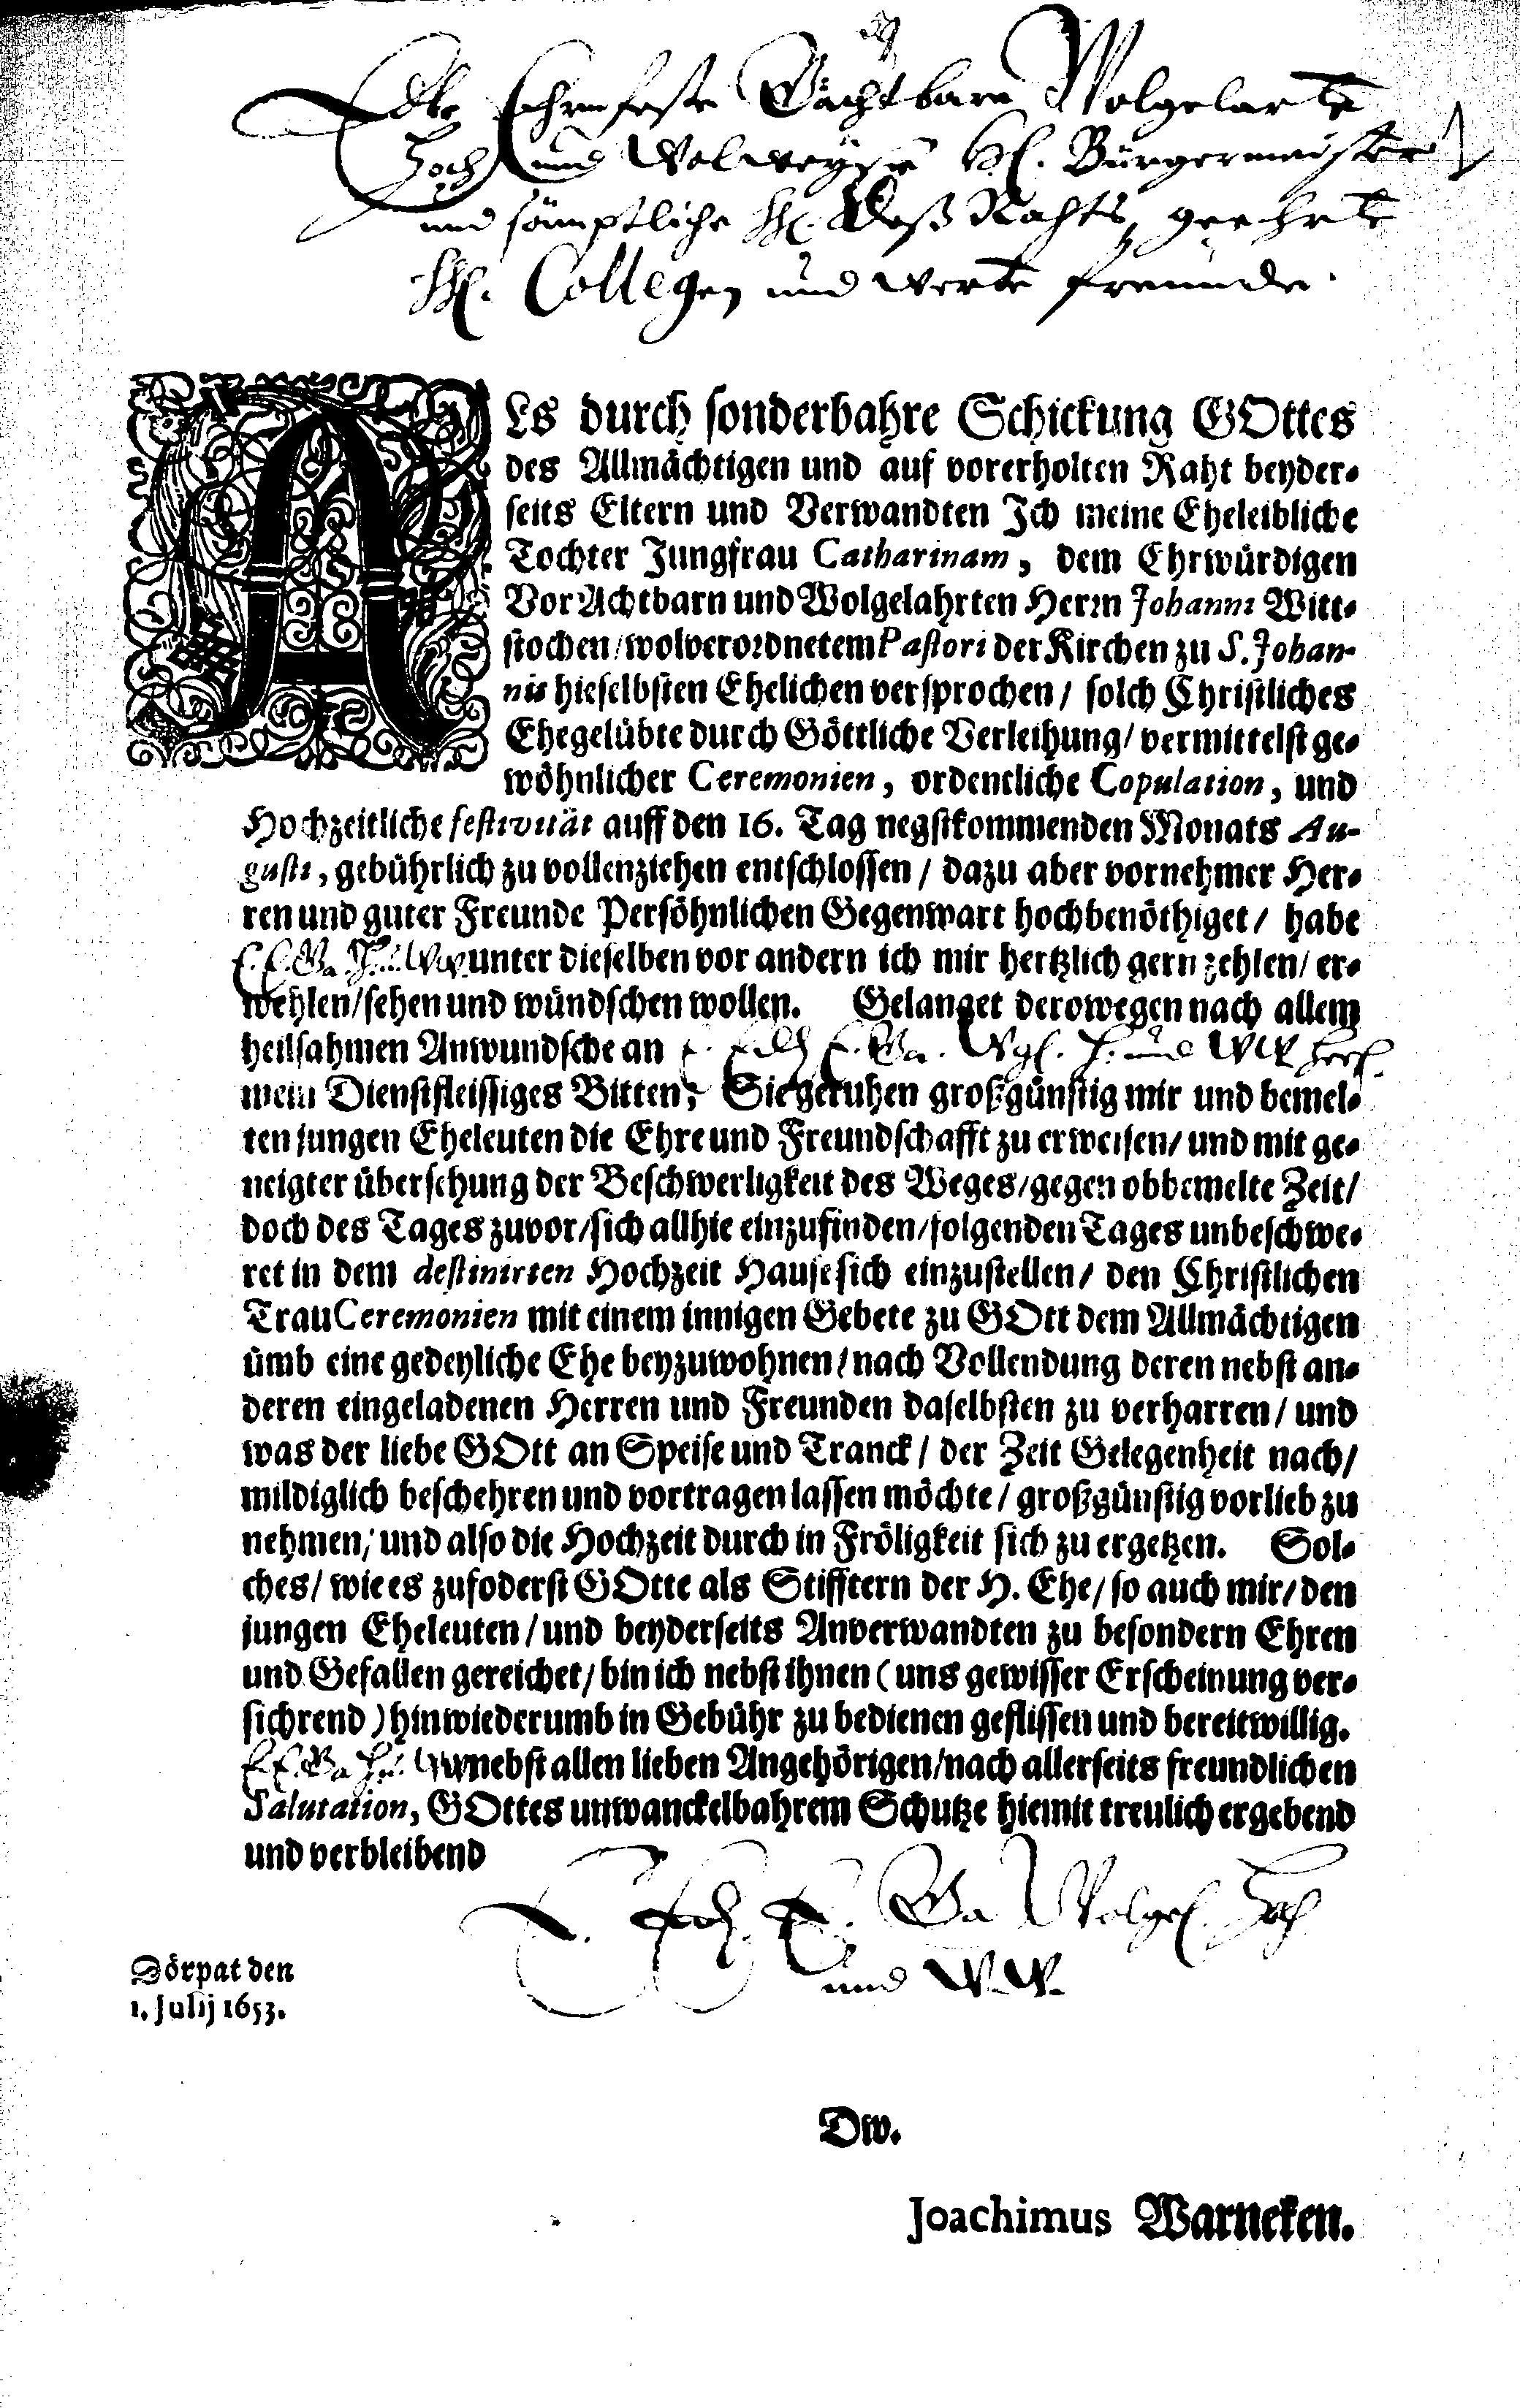 Edle Ehrnfeste GroAchtbare Wolgelarte
Hoch und Wolweyse HH. Bürgermeister
und sämptliche HH. deß Rahts, geehrte
HH. Collegen und werte freunde.
ALs durch sonderbahre Schickung GOttes
des Allmächtigen und auf vorerholten Raht beyder-
seits Eltern und Verwandten Ich meine Eheleibliche
Tochter Jungfrau Catharinam, dem Ehrwürdigen
VorAchtbarn und Wolgelahrten Herrn Johanni Witt-
stochen/wolverordnetem Pastori der Kirchen zu S. Johan-
nis hieselbsten Ehelichen versprochen/ solch Christliches
Ehegelübte durch Göttliche Verleihung/ vermittelst ge-
wöhnlicher Ceremonien, ordentliche Copulation, und
Hochzeitliche festivität auff den 16. Tag negstkommenden Monats Au-
gusti, gebührlich zu vollenziehen entschlossen / dazu aber vornehmer Her-
ren und guter Freunde Persöhnlichen Gegenwart hochbenöthiget/ habe
unter dieselben vor andern ich mir hertzlich gern zehlen/ er-
wehlen/sehen und wündschen wollen. Gelanget derowegen nach allem
heilsahmen Anwundsche an
mein Dienstfleissiges Bitten, Sie geruhen großgünstig mir und bemel-
ten jungen Eheleuten die Ehre und Freundschafft zu erweisen/ und mit ge-
neigter übersehung der Beschwerligkeit des Weges/gegen obbemelte Zeit/
doch des Tages zuvor/sich allhie einzufinden/folgenden Tages unbeschwe-
ret in dem destinirten Hochzeit Hause sich einzustellen/ den Christlichen
TrauCeremonien mit einem innigen Gebete zu GOtt dem Allmächtigen
ümb eine gedeyliche Ehe beyzuwohnen/nach Vollendung deren nebst an-
deren eingeladenen Herren und Freunden daselbsten zu verharren/ und
was der liebe GOtt an Speise und Tranck/ der Zeit Gelegenheit nach/
mildiglich beschehren und vortragen lassen möchte/ großgünstig vorlieb zu
nehmen/ und also die Hochzeit durch in Fröligkeit sich zu ergetzen. Sol-
ches/ wie es zufoderst GOtte als Stifftern der H. Ehe/ so auch mir/ den
jungen Eheleuten/ und beyderseits Anverwandten zu besondern Ehren
und Gefallen gereichet/ bin ich nebst ihnen (uns gewisser Erscheinung ver-
sichrend) hinwiederumb in Gebühr zu bedienen geflissen und bereitwillig.
nebst allen lieben Angehörigen/nach allerseits freundlichen
Salutation, GOttes unwanckelbahrem Schutze hiemit treulich ergebend
und verbleibend
Wolgel. Hoch
und W.W.
Dörpat den
1. Julij 1653.
Dw.
Joachimus Warneken.